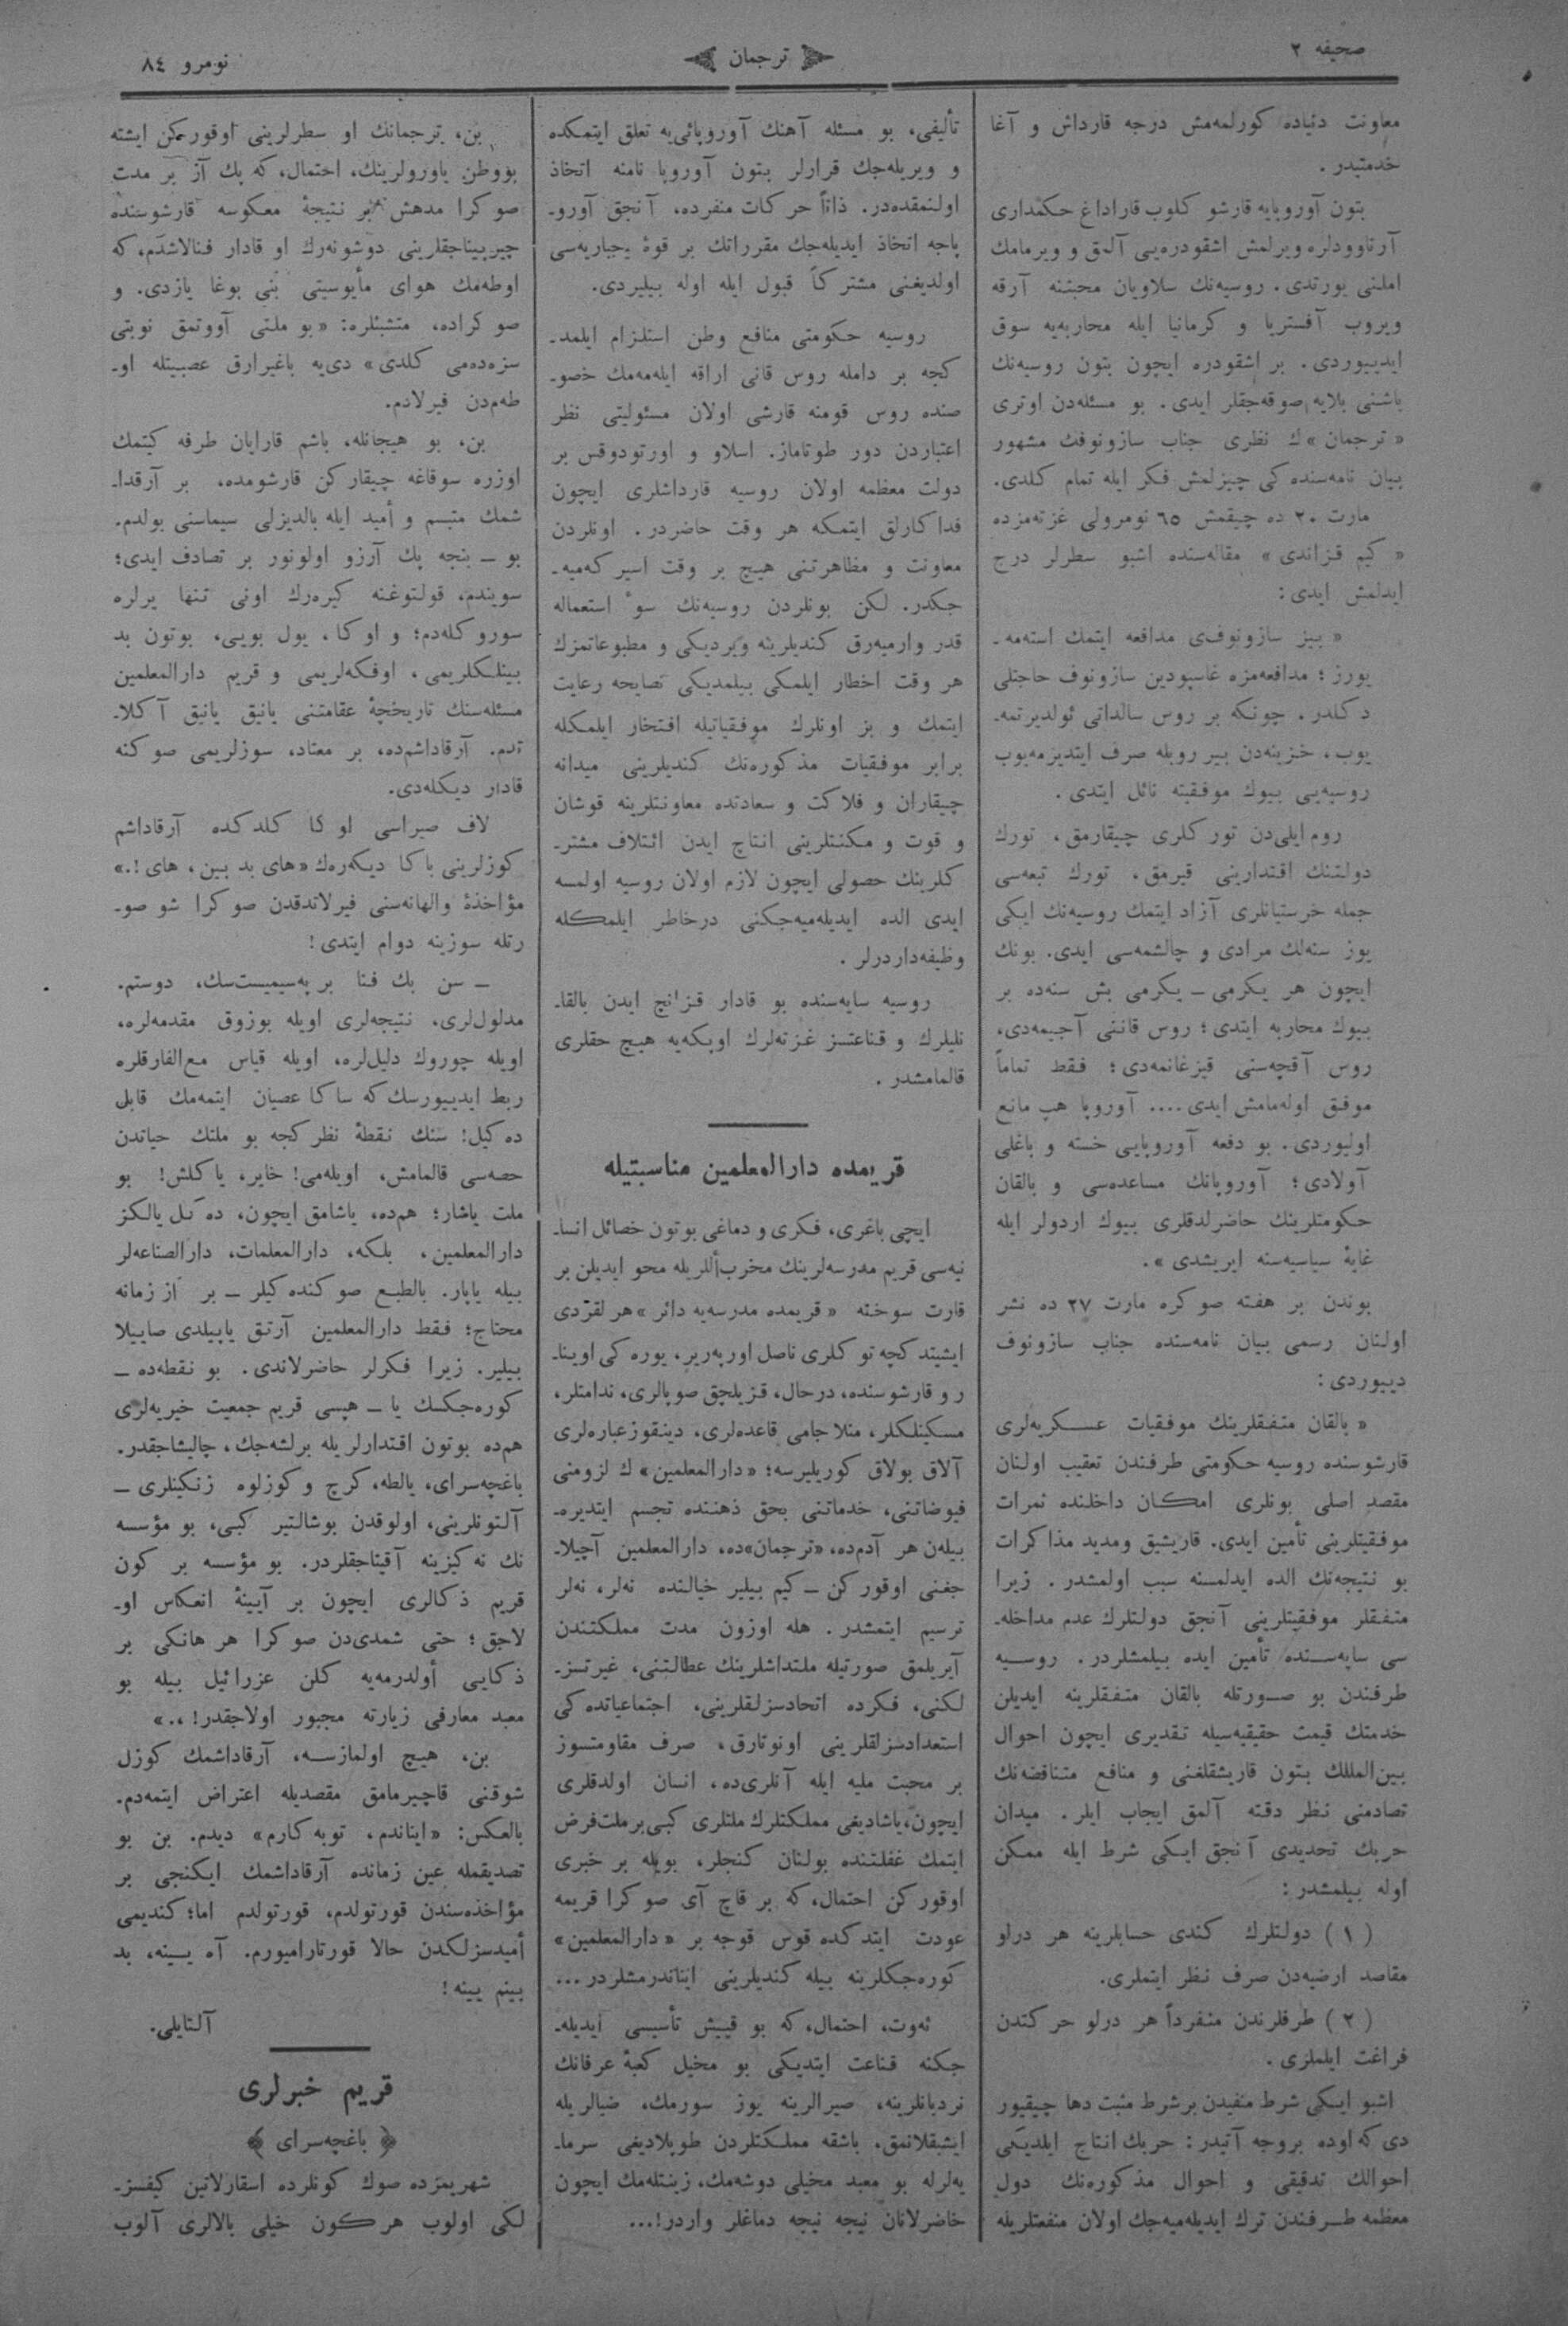 صحیفه ٢
ترجمان
نومرو ٨٤
معاونت دنیاده كورلمه‌مش درجه قارداش و آغا
خدمتیدر.
بتون آوروپایه قارشو كلوب قاراداغ حكمداری
آرناوودلره ویرلمش اشقودره‌یی آلمق و ویرمامك
املنی یورتدی. روسیه‌نك سلاویان محبتنه آرقه
ویروب آفستریا و كرمانیا ایله محاربه‌یه سوق
ایدییوردی. بر اشقودره ایچون بتون روسیه‌نك
باشنی بلایه صوقه‌جقلر ایدی. بو مسئله‌دن اوتری
«ترجمان»ك نظری جناب سازونوفك مشهور
بیان نامه‌سنده كی چیزلمش فكر ایله تمام كلدی.
مارت ٢٠ ده چیقمش ٦٥ نومرولی غزته‌مزده
«كیم قزاندی» مقاله‌سنده اشبو سطرلر درج
ایدلمش ایدی:
«بیز سازونوفی مدافعه ایتمك استه‌مه-
یورز؛ مدافعه‌مزه غاسپودین سازونوف حاجتلی
دكلدر. چونكه بر روس سالداتی ئولدیرتمه-
یوب، خزینه‌دن بیر روبله صرف ایتدیزمه‌یوب
روسیه‌یی بیوك موفقیته نائل ایتدی.
روم ایلی‌دن تورکلری چیقارمق، تورك
دولتنك اقتدارینی قیرمق، تورك تبعه‌سی
جمله خرستیانلری آزاد ایتمك روسیه‌نك ایكی
یوز سنه‌لك مرادی و چالشمه‌سی ایدی. بونك
ایچون هر یكرمی - یكرمی بش سنه‌ده بر
بیوك محاربه ایتدی؛ روس قاننی آجیمه‌دی،
روس آقچه‌سنی قیزغانمه‌دی؛ فقط تماماً
موفق اوله‌مامش ایدی.... آوروپا هپ مانع
اولیوردی. بو دفعه آوروپایی خسته و باغلی
آولادی؛ آوروپانك مساعده‌سی و بالقان
حكومتلرینك حاضرلدقلری بیوك اردولر ایله
غایهٔ سیاسیه‌سنه ایریشدی».
بوندن بر هفته صوكره مارت ٢٧ ده نشر
اولنان رسمی بیان نامه‌سنده جناب سازونوف
دییوردی:
«بالقان متفقلرینك موفقیات عسكریه‌لری
قارشوسنده روسیه حكومتی طرفندن تعقیب اولنان
مقصد اصلی بونلری امكان داخلنده ثمرات
موفقیتلرینی تأمین ایدی. قاریشیق ومدید مذاكرات
بو نتیجه‌نك الده ایدلمسنه سبب اولمشدر. زیرا
متفقلر موفقیتلرینی آنجق دولتلرك عدم مداخله-
سی سایه‌سنده تأمین ایده بیلمشلردر. روسیه
طرفندن بو صورتله بالقان متفقلرینه ایدیلن
خدمتك قیمت حقیقیه‌سیله تقدیری ایچون احوال
بین‌المللك بتون قاریشقلغنی و منافع متناقضه‌نك
تصادمنی نظر دقته آلمق ایجاب ایلر. میدان
حربك تحدیدی آنجق ایكی شرط ایله ممكن
اوله بیلمشدر:
(١) دولتلرك كندی حسابلرینه هر درلو
مقاصد ارضیه‌دن صرف نظر ایتملری.
(٢) طرفلرندن منفرداً هر درلو حركتدن
فراغت ایلملری.
اشبو ایكی شرط منفیدن برشرط مثبت دها چیقیور
دی كه اوده بروجه آتیدر: حربك انتاج ایلدیكی
احوالك تدقیقی و احوال مذكوره‌نك دول
معظمه طرفندن ترك ایدیله‌میه‌جك اولان منفعتلریله
تألیفی، بو مسئله آهنك آوروپائی‌یه تعلق ایتمكده
و ویریله‌جك قرارلر بتون آوروپا نامنه اتخاذ
اولنمقده‌در. ذاتاً حركات منفرده، آنجق آورو-
پاجه اتخاذ ایدیله‌جك مقرراتك بر قوهٔ جباریه‌سی
اولدیغنی مشتركاً قبول ایله اوله بیلیردی.
روسیه حكومتی منافع وطن استلزام ایلمد-
كجه بر دامله روس قانی اراقه ایله‌مه‌مك خصو-
صنده روس قومنه قارشی اولان مسئولیتی نظر
اعتباردن دور طوتاماز. اسلاو و اورتودوقس بر
دولت معظمه اولان روسیه قارداشلری ایچون
فداكارلق ایتمكه هر وقت حاضردر. اونلردن
معاونت و مظاهرتنی هیچ بر وقت اسیركه‌میه-
جكدر. لكن بونلردن روسیه‌نك سوء استعماله
قدر وارمیه‌رق كندیلرینه ویردیكی و مطبوعاتمزك
هر وقت اخطار ایلمكی بیلمدیكی نصایحه رعایت
ایتمك و بز اونلرك موفقیاتیله افتخار ایلمكله
برابر موفقیات مذكوره‌نك كندیلرینی میدانه
چیقاران و فلاكت و سعادتده معاونتلرینه قوشان
و قوت و مكنتلرینی انتاج ایدن ائتلاف مشتر-
كلرینك حصولی ایچون لازم اولان روسیه اولمسه
ایدی الده ایدیله‌میه‌جكنی درخاطر ایلمكله
وظیفه‌داردرلر.
روسیه سایه‌سنده بو قادار قزانج ایدن بالقا-
نلیلرك و قناعتسز غزته‌لرك اوپكه‌یه هیچ حقلری
قالمامشدر.
قریمده دارالمعلمین مناسبتیله
ایچی باغری، فكری و دماغی بوتون خصائل انسا-
نیه‌سی قریم مدرسه‌لرینك مخرب‌أللریله محو ایدیلن بر
قارت سوخته «قریمده مدرسه‌یه دائر» هر لقردی
ایشیتدكچه توكلری ناصل اورپه‌ریر، یوره كی اوینا-
ر و قارشوسنده، درحال، قزیلجق صوپالری، ندامتلر،
مسكینلكلر، منلا جامی قاعده‌لری، دینقوز عباره‌لری
آلاق بولاق كوریلیرسه؛ «دارالمعلمین» ك لزومنی
فیوضاتنی، خدماتنی بحق ذهننده تجسم ایتدیره-
بیلەن هر آدم‌ده، «ترجمان»ده، دارالمعلمین آچیلا-
جغنی اوقوركن - كیم بیلیر خیالنده نه‌لر، نه‌لر
ترسیم ایتمشدر. هله اوزون مدت مملكتندن
آیریلمق صورتیله ملتداشلرینك عطالتنی، غیرتسز-
لكنی، فكرده اتحادسزلقلرینی، اجتماعیاتده كی
استعدادسزلقلرینی اونوتارق، صرف مقاومتسوز
بر محبت ملیه ایله آنلری‌ده، انسان اولدقلری
ایچون، یاشادیغی مملكتلرك ملتلری كبی‌برملت‌فرض
ایتمك غفلتنده بولنان كنجلر، بویله بر خبری
اوقوركن احتمال، كه بر قاچ آی صوكرا قریمه
عودت ایتدكده قوس قوجه بر «دارالمعلمین»
كوره‌جكلرینه بیله كندیلرینی اینانـدرمشلردر...
ئه‌وت، احتمال، كه بو قییش تأسیسی ایدیله-
جكنه قناعت ایتدیكی بو مخیل كعبهٔ عرفانك
نردبانلرینه، صیرالرینه یوز سورمك، ضیالریله
ایشیقلانمق، باشقه مملكتلردن طوپلادیغی سرما-
یه‌لرله بو معبد مخیلی دوشه‌مك، زینتله‌مك ایچون
حاضرلانان نیجه نیجه دماغلر واردر!...
بن، ترجمانك او سطرلرینی اوقوركن ایشته
بووطن یاورولرینك، احتمال، كه پك آز بر مدت
صوكرا مدهش بر نتیجهٔ معكوسه قارشوسنده
چیرپیناجقلرینی دوشونه‌رك او قادار فنالاشدم، كه
اوطه‌مك هوای مأیوسیتی بنی بوغا یازدی. و
صوكراده، متشبثلره: «بو ملتی آووتمق نوبتی
سزه‌ده‌می كلدی» دی‌یه باغیرارق عصبیتله او-
طه‌مدن فیرلادم.
بن، بو هیجانله، باشم قارایان طرفه كیتمك
اوزره سوقاغه چیقاركن قارشومده، بر آرقدا-
شمك متبسم و أمید ایله یالدیزلی سیماسنی بولدم.
بو - بنجه پك آرزو اولونور بر تصادف ایدی؛
سویندم، قولتوغنه كیره‌رك اونی تنها یرلره
سوروكله‌دم؛ و اوكا، یول بویی، بوتون بد
بینلكلریمی، اوفكه‌لریمی و قریم دارالمعلمین
مسئله‌سنك تاریخچهٔ عقامتنی یانیق یانیق آكلا-
تدم. آرقاداشم‌ده، بر معتاد، سوزلریمی صوكنه
قادار دیكله‌دی.
لاف صیراسی اوكا كلدكده آرقاداشم
كوزلرینی باكا دیكه‌رەك «های بد بین، های!.»
مؤاخذهٔ والهانه‌سنی فیرلاتدقدن صوكرا شو صو-
رتله سوزینه دوام ایتدی!
- سن بك فنا بر په‌سیمیست‌سك، دوستم.
مدلول‌لری، نتیجه‌لری اویله بوزوق مقدمه‌لره،
اویله چوروك دلیل‌لره، اویله قیاس مع‌الفارقلره
ربط ایدییورسك كه ساكا عصیان ایتمه‌مك قابل
ده‌كیل! سنك نقطهٔ نظركجه بو ملتك حیاتدن
حصه‌سی قالمامش، اویله‌می! خایر، یاكلش! بو
ملت یاشار؛ هم‌ده، یاشامق ایچون، ده‌كیل یالكز
دارالمعلمین، بلكه، دارالمعلمات، دارالصناعه‌لر
بیله یاپار. بالطبع صوكنده‌كیلر - بر از زمانه
محتاج؛ فقط دارالمعلمین آرتق یاپیلدی صاییلا
بیلیر. زیرا فكرلر حاضرلاندی. بو نقطه‌ده -
كوره‌جكسك یا - هپسی قریم جمعیت خیریه‌لری
هم‌ده بوتون اقتدارلریله برلشه‌جك، چالیشاجقدر.
باغچه‌سرای، یالطه، كرچ و كوزلوه زنكینلری -
آلتونلرینی، اولوقدن بوشالتیر كبی، بو مؤسسه
نك ته‌كیزینه آقیتاجقلردر. بو مؤسسه بر كون
قریم ذكالری ایچون بر آیینهٔ انعكاس او-
لاجق؛ حتی شمدی‌دن صوكرا هر هانكی بر
ذكایی أولدرمه‌یه كلن عزرائیل بیله بو
معبد معارفی زیارته مجبور اولاجقدر!..»
بن، هیچ اولمازسه، آرقاداشمك كوزل
شوقنی قاچیرمامق مقصدیله اعتراض ایتمه‌دم.
بالعكس: «ایناندم، توبه كارم» دیدم. بن بو
تصدیقمله عین زمانده آرقاداشمك ایكنجی بر
مؤاخذه‌سندن قورتولدم، قورتولدم اما؛ كندیمی
أمیدسزلكدن حالا قورتارامیورم. آه یینه، بد
بینم یینه!
آلتایلی.
قریم خبرلری
﴿ باغچه‌سرای ﴾
شهریمزده صوك كونلرده اسقارلاتین كیفسز-
لكی اولوب هركون خیلی بالالری آلوب